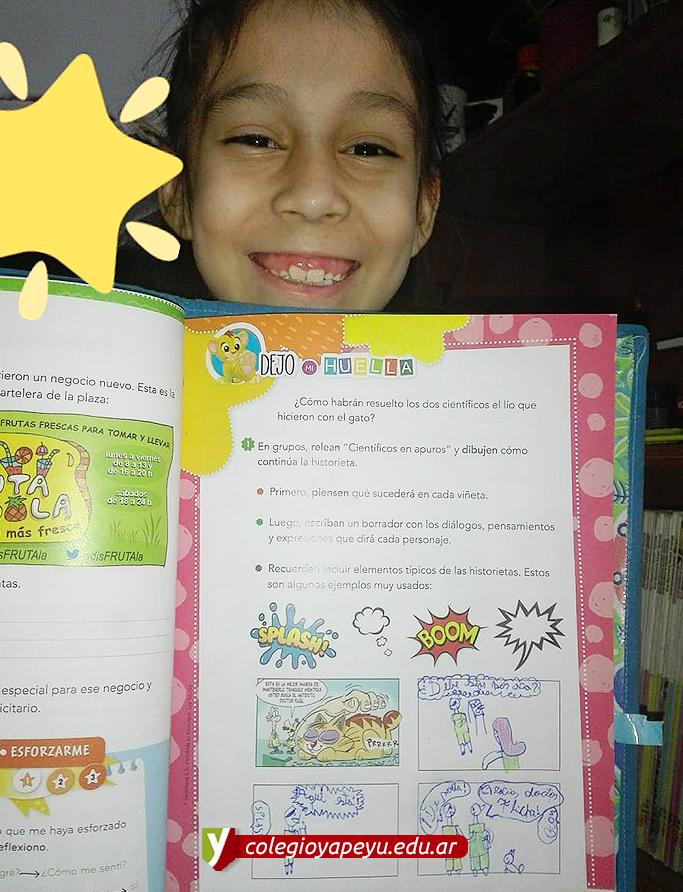 rieron un negocio nuevo. Esta es la
artelera de la plaza:
FRUTAS FRESCAS PARA TOMAR Y LLEVAR
lunes a viernes
de 8 a 13 y
de 16 a 20 h
sábados
de 18 a 24 h
más fresc
isFRUTAla
@disFRUTAla
tas.
especial para ese negocio y
icitario.
• ESFORZARME
1 2 3
o que me haya esforzado
eflexiono.
gré? → ¿Cómo me sentí?
DEJO MI HUELLA
¿Cómo habrán resuelto los dos científicos el lío que
hicieron con el gato?
1 En grupos, relean “Científicos en apuros” y dibujen cómo
continúa la historieta.
Primero, piensen qué sucederá en cada viñeta.
Luego, escriban un borrador con los diálogos, pensamientos
y expresiones que dirá cada personaje.
Recuerden incluir elementos típicos de las historietas. Estos
son algunos ejemplos muy usados:
SPLASH!
BOOM
ESTA ES LA MEJOR MANERA DE
MANTENERLO TRANQUILO MIENTRAS
USTED BUSCA EL ANTÍDOTO
DOCTOR FLAX.
PRRRRR
colegioyapeyu.edu.ar